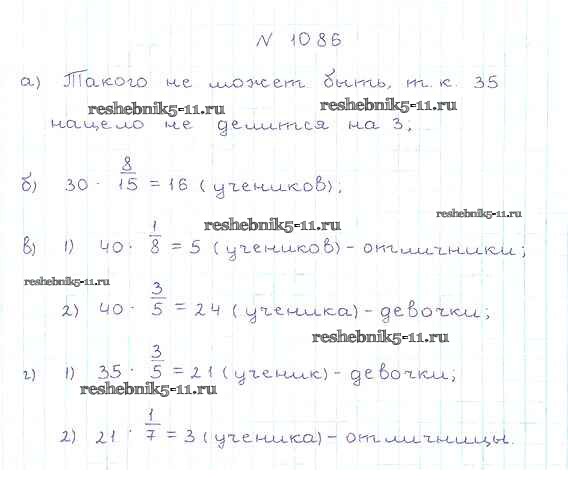 № 1086
а) Такого не может быть, т.к. 35
reshebnik5-11.ru reshebnik5-11.ru
нацело не делится на 3;
б) 30 · 8/15 = 16 (учеников);
reshebnik5-11.ru
reshebnik5-11.ru
в) 1) 40 · 1/8 = 5 (учеников) - отличники;
reshebnik5-11.ru
2) 40 · 3/5 = 24 (ученика) - девочки;
reshebnik5-11.ru
г) 1) 35 · 3/5 = 21 (ученик) - девочки;
reshebnik5-11.ru
2) 21 · 1/7 = 3 (ученика) - отличницы.